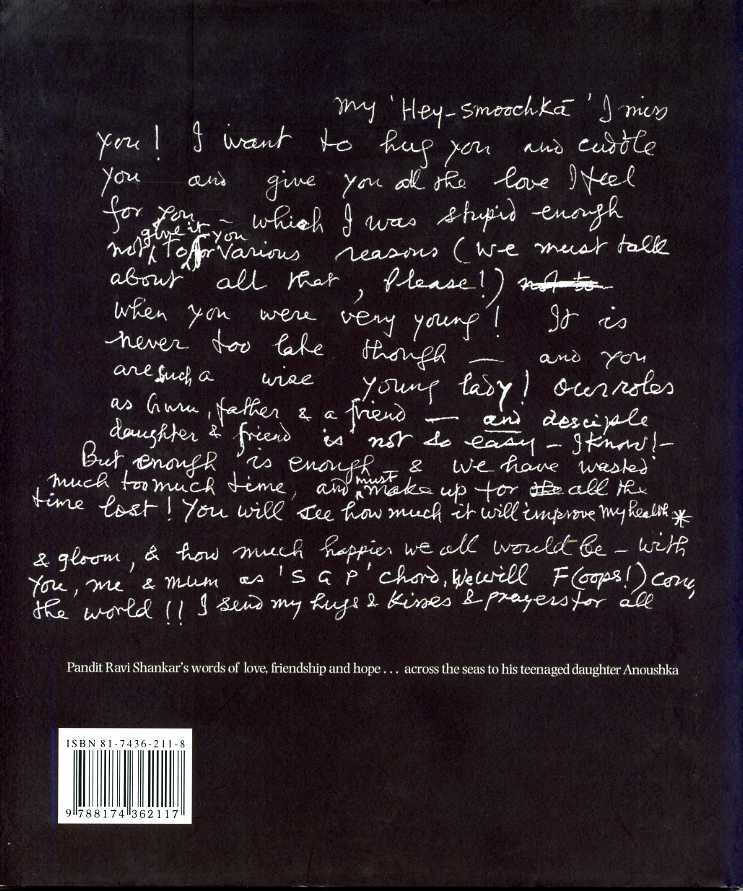 my 'Hey-smoochkā' I miss
you! I want to hug you and cuddle
you and give you all the love I feel
for you – which I was stupid enough
not to give it you for various reasons (we must talk
about all that, please!) not to
when you were very young! It is
never too late though — and you
are such a wise young lady! our roles
as Guru, father & a friend — and desciple
daughter & friend is not so easy – I know! –
But enough is enough & we have wasted
much too much time, and must make up for all the
time lost! You will see how much it will improve my health *
& gloom, & how much happier we all would be – with
you, me & mum as 'S G P' chord, We will F(oops!) conq
the world!! I send my hugs & kisses & prayers for all
Pandit Ravi Shankar's words of love, friendship and hope . . . across the seas to his teenaged daughter Anoushka
ISBN 81-7436-211-8
9 788174 362117